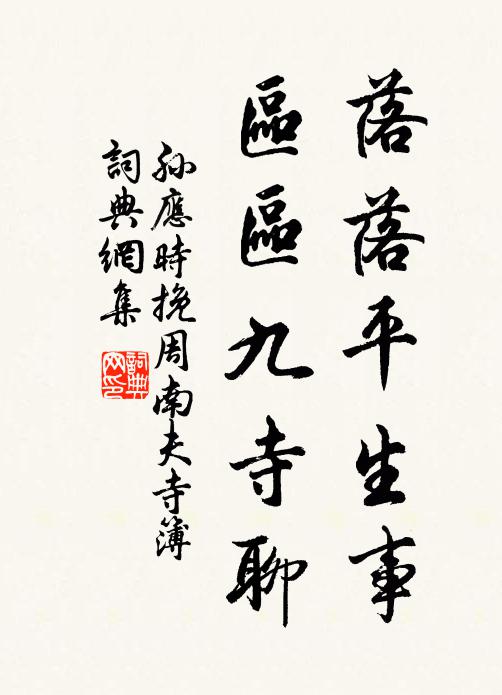 落落平生事
區區九寺聊
孫應時挽周南夫寺簿
詞典網集
詞典网印